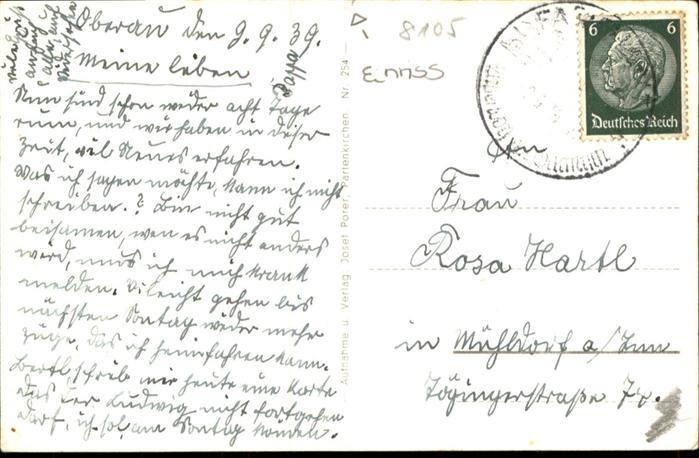 Oberau den 9. 9. 39.
Meine lieben
Nun sind schon wieder acht Tage
rum, und wir haben in dieser
Zeit, viel Neues erfahren.
Was ich sagen möchte, kann ich nicht
schreiben.? Bin nicht gut
beisamen, wen es nicht anders
wird, mus ich mich krank
melden. Vileicht gehen bis
nächsten Sontag wieder mehr
Züge, das ich heimfahren kann.
Bertl, schreib mir heute eine Karte
das der Ludwig nicht fortgehen
darf, ich sol, am Sontag kommen.
Papa
Aufnahme u. Verlag Josef Porer, Partenkirchen Nr. 254
8105
6 6
Deutsches Reich
An
Frau
Rosa Hartl
in Mühldorf a/Inn
Tögingerstraße 7